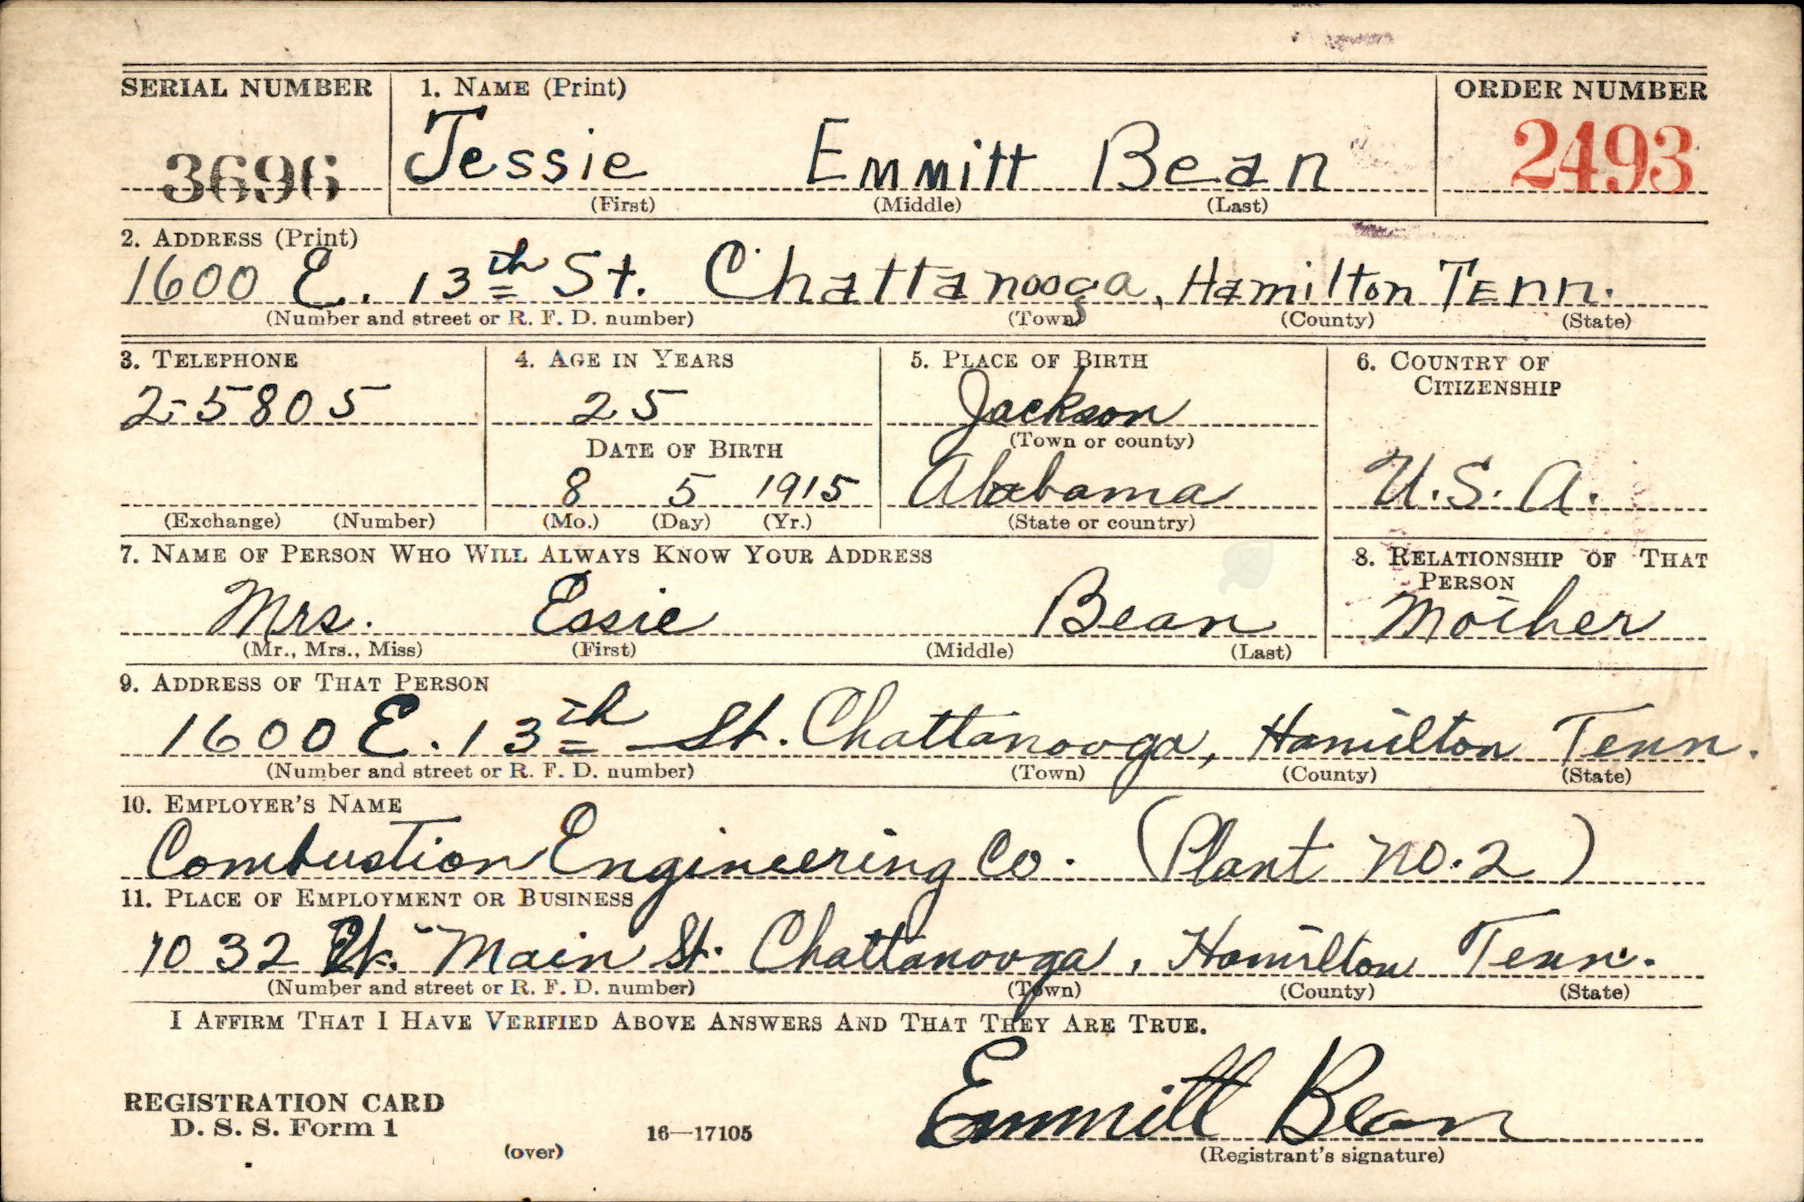 SERIAL NUMBER 1. NAME (Print) ORDER NUMBER
3696 Jessie Emmitt Bean 2493
(First) (Middle) (Last)
2. ADDRESS (Print)
1600 E. 13th St. Chattanooga, Hamilton Tenn.
(Number and street or R. F. D. number) (Town) (County) (State)
3. TELEPHONE 4. AGE IN YEARS 5. PLACE OF BIRTH 6. COUNTRY OF
CITIZENSHIP
2-5805 25 Jackson
(Town or county)
DATE OF BIRTH
8 5 1915 Alabama U.S.A.
(Exchange) (Number) (Mo.) (Day) (Yr.) (State or country)
7. NAME OF PERSON WHO WILL ALWAYS KNOW YOUR ADDRESS 8. RELATIONSHIP OF THAT
PERSON
Mrs. Essie Bean Mother
(Mr., Mrs., Miss) (First) (Middle) (Last)
9. ADDRESS OF THAT PERSON
1600 E. 13th St. Chattanooga, Hamilton Tenn.
(Number and street or R. F. D. number) (Town) (County) (State)
10. EMPLOYER'S NAME
Combustion Engineering Co. (Plant No. 2)
11. PLACE OF EMPLOYMENT OR BUSINESS
1032 Main St. Chattanooga, Hamilton Tenn.
(Number and street or R. F. D. number) (Town) (County) (State)
I AFFIRM THAT I HAVE VERIFIED ABOVE ANSWERS AND THAT THEY ARE TRUE.
Emmitt Bean
REGISTRATION CARD
D. S. S. Form 1
(over) 16—17105 (Registrant's signature)